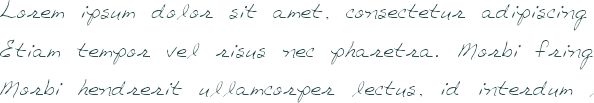 Lorem ipsum dolor sit amet, consectetur adipiscing
Etiam tempor vel risus nec pharetra. Morbi fring
Morbi hendrerit ullamcorper lectus, id interdum